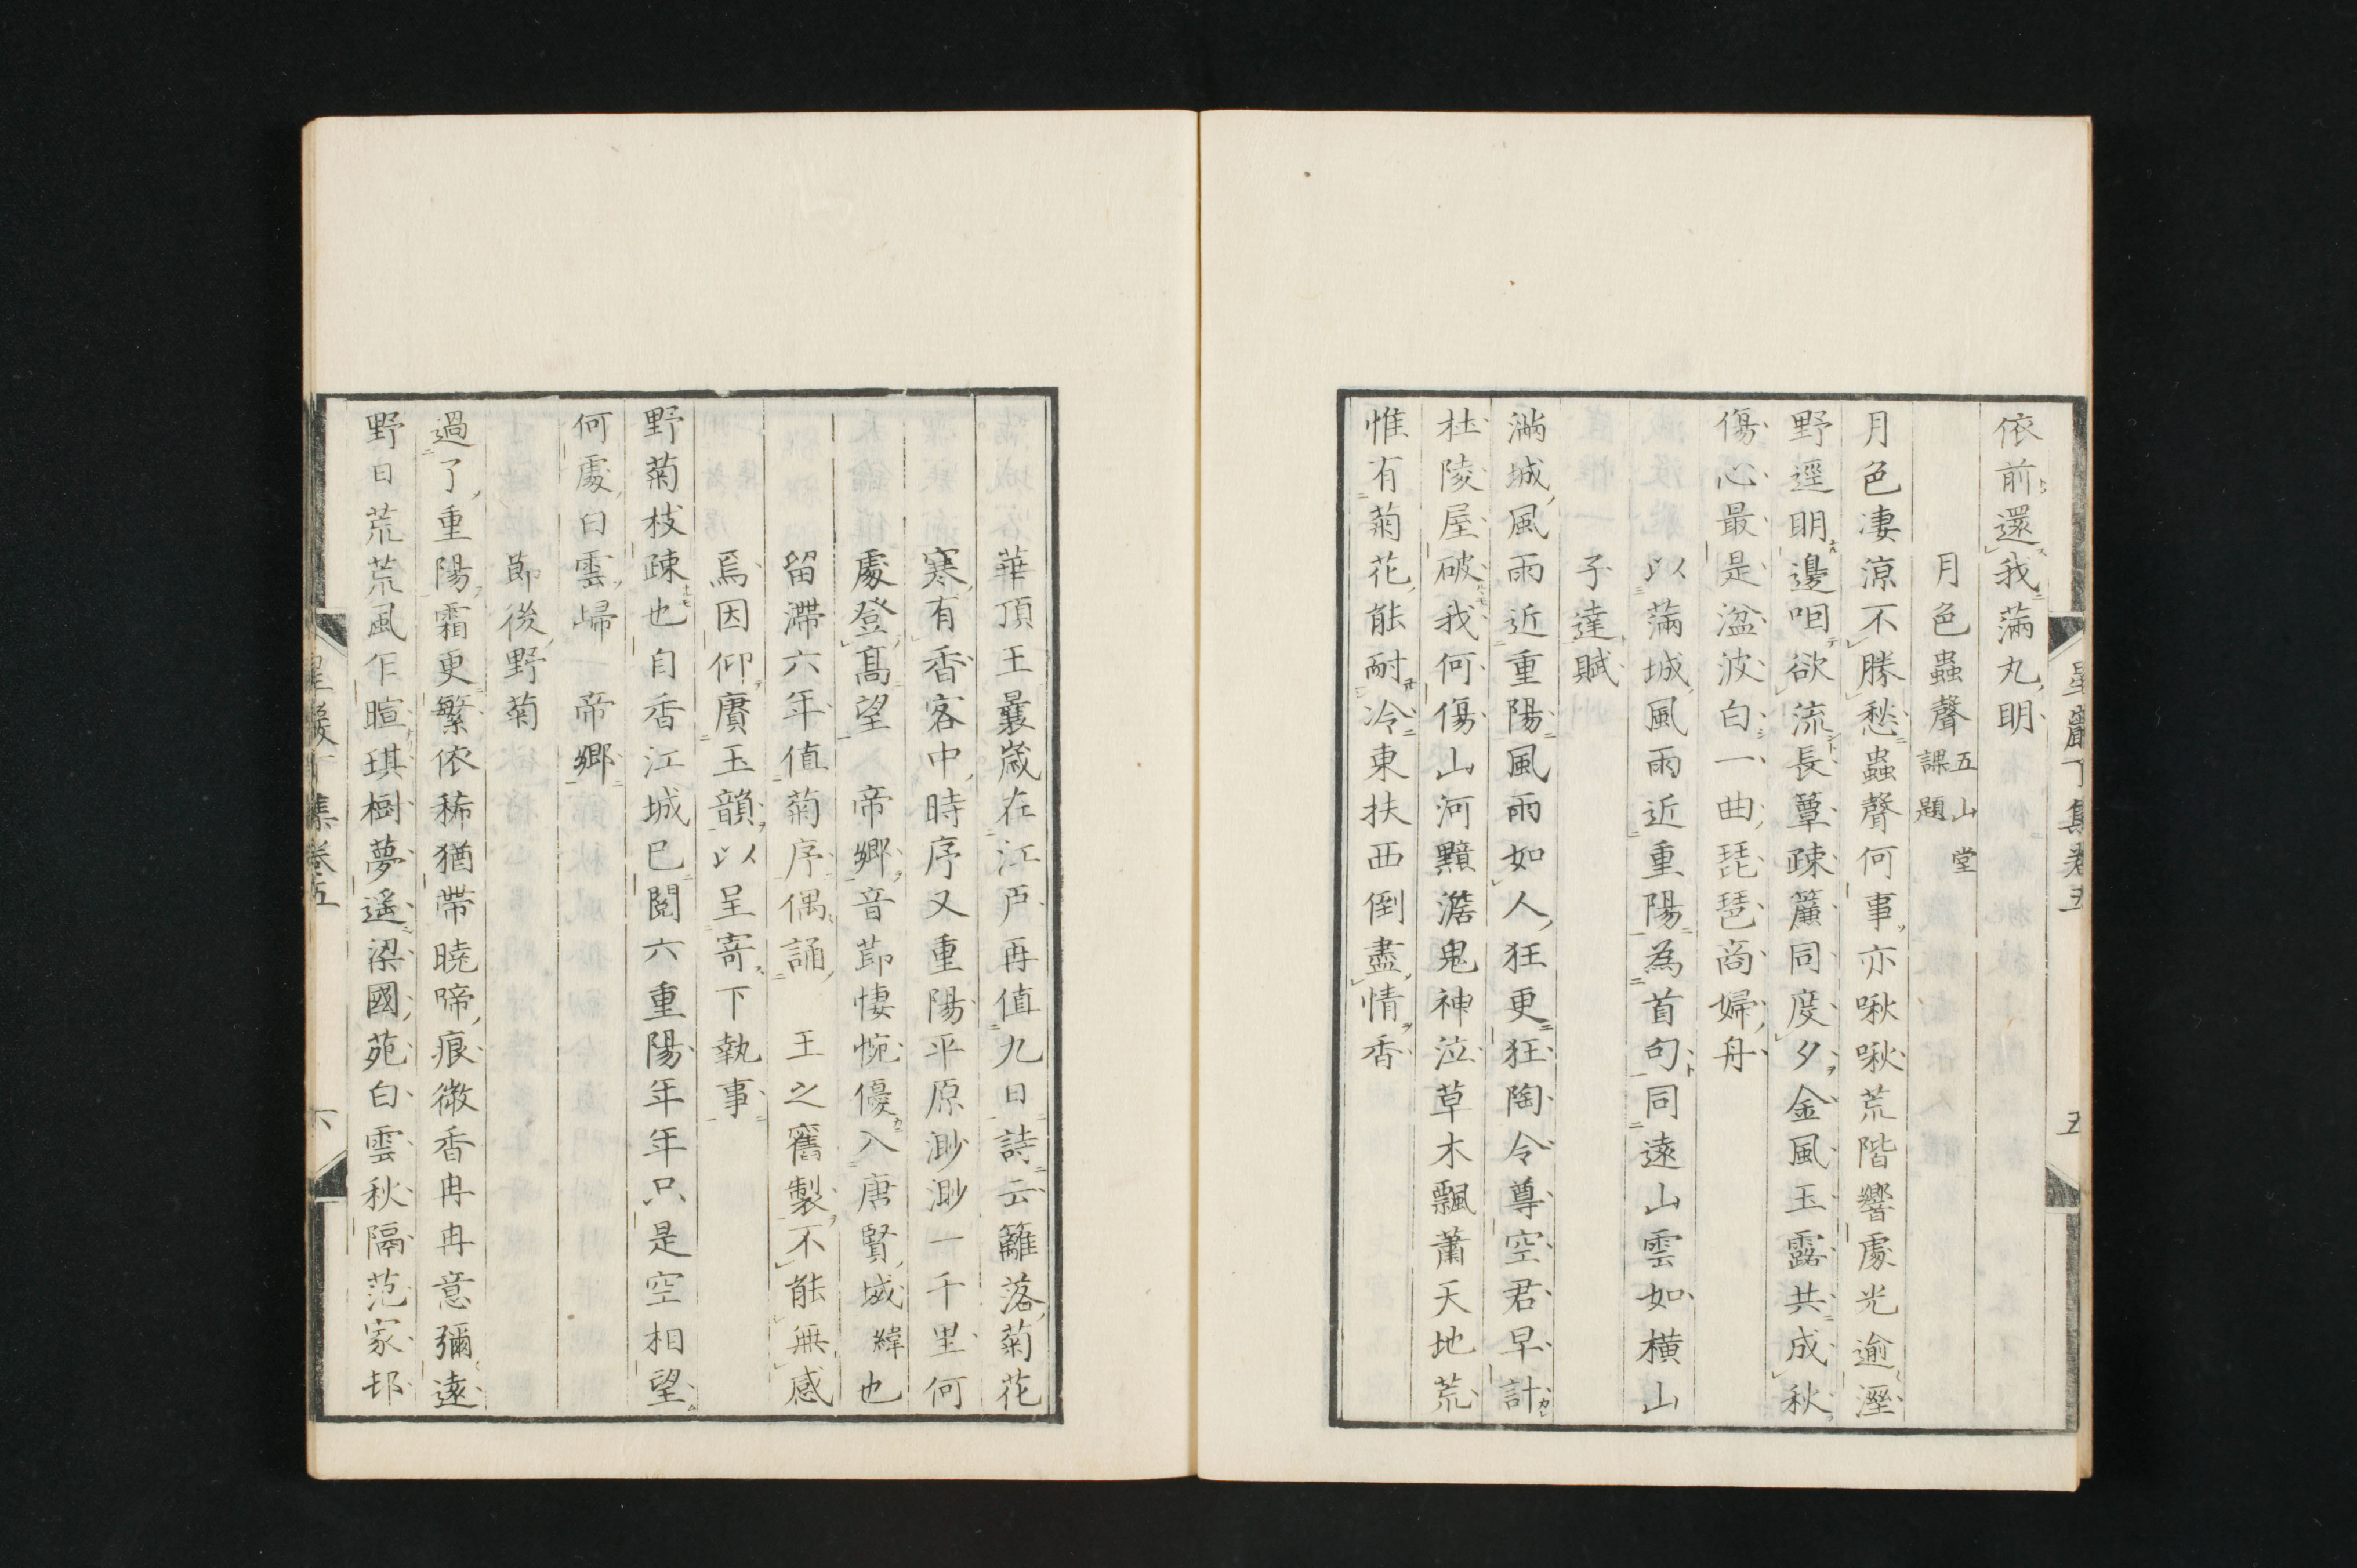 星巖丁集卷五
五
依前還我滿丸明
月色蟲聲 五山堂課題
月色凄凉不勝愁蟲聲何事亦啾啾荒階響處光逾溼
野逕明邊咽欲流長簟疎簾同度夕金風玉露共成秋
傷心最是湓波白一曲琵琶商婦舟
以滿城風雨近重陽為首句同遠山雲如橫山
子達賦
滿城風雨近重陽風雨如人狂更狂陶令尊空君早計
杜陵屋破我何傷山河黯澹鬼神泣草木飄蕭天地荒
惟有菊花能耐冷東扶西倒盡情香
華頂王曩歲在江戶再值九日詩云籬落菊花
寒有香客中時序又重陽平原渺渺一千里何
處登高望 帝鄉音節悽惋優入唐賢域緯也
留滯六年值菊序偶誦 王之舊製不能無感
焉因仰賡玉韻以呈寄下執事
野菊枝疎也自香江城已閱六重陽年年只是空相望
何處白雲歸 帝鄉
節後野菊
過了重陽霜更繁依稀猶帶曉啼痕微香冉冉意彌遠
野日荒荒風乍暄琪樹夢遙梁國苑白雲秋隔范家邨
星巖丁集卷五
六